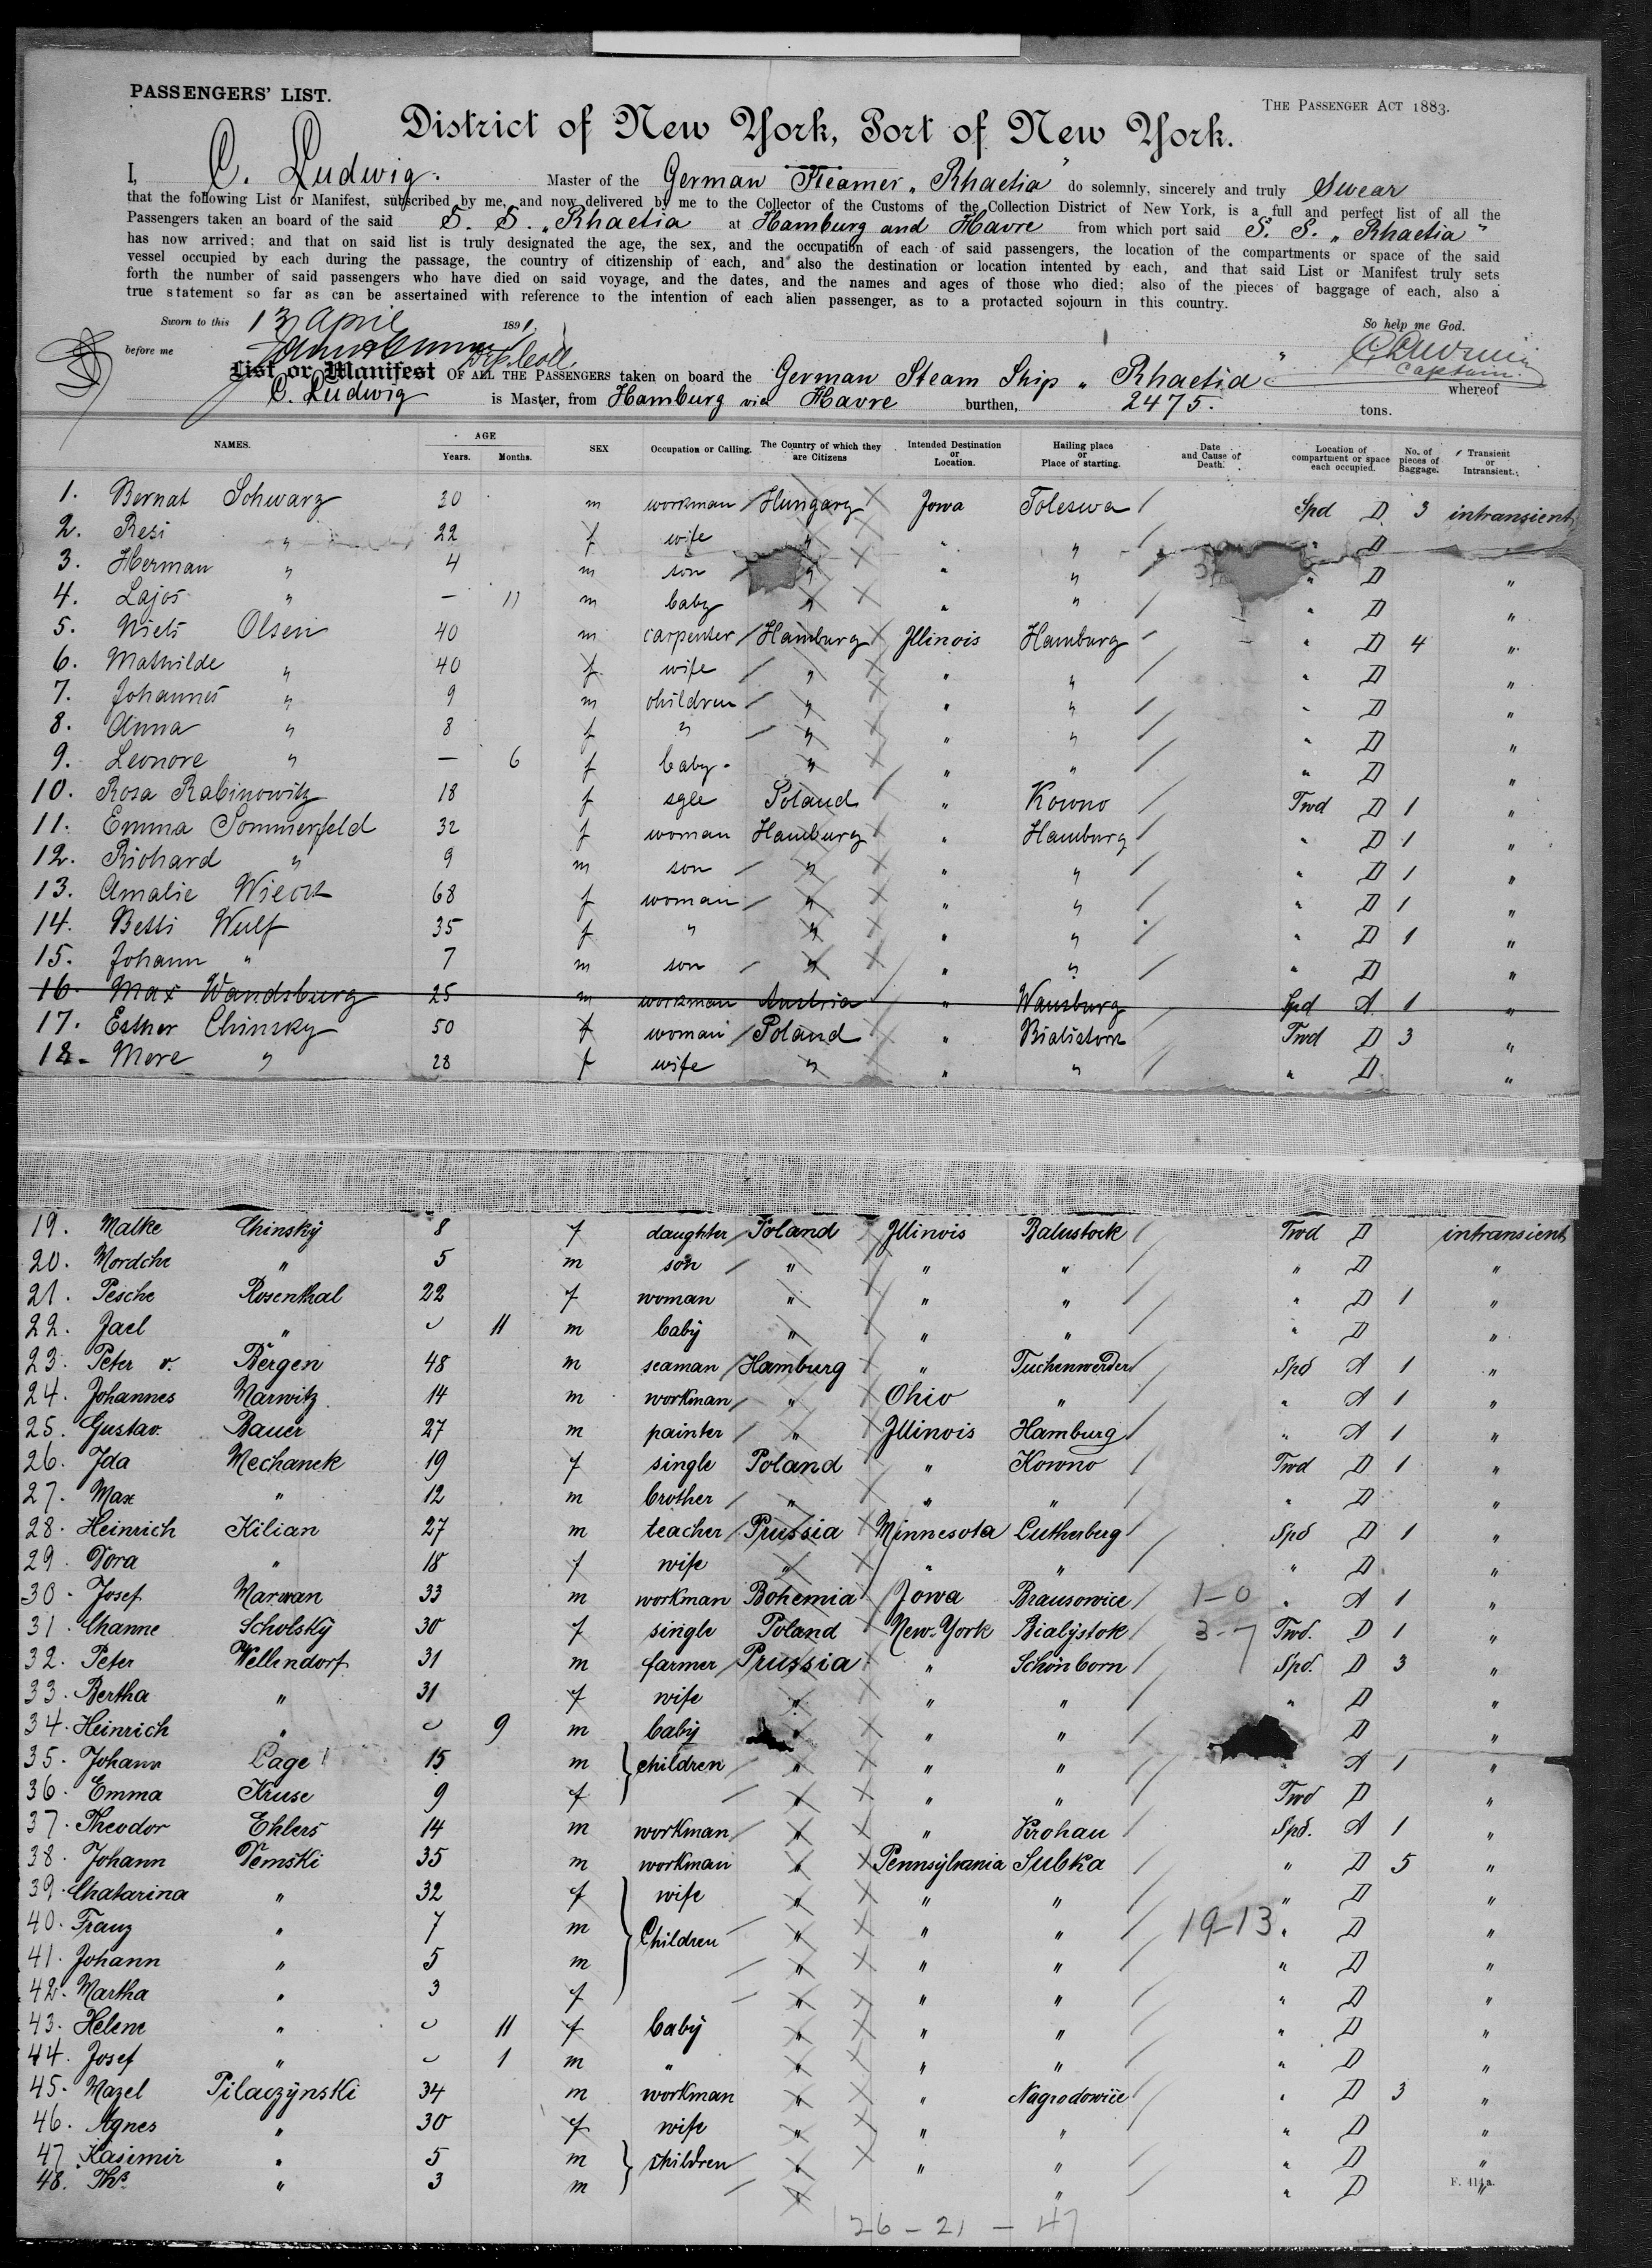 PASSENGERS' LIST.
THE PASSENGER ACT 1883.
District of New York, Port of New York.
I, C. Ludwig. Master of the German Steamer „Rhaetia" do solemnly, sincerely and truly Swear
that the following List or Manifest, subscribed by me, and now delivered by me to the Collector of the Customs of the Collection District of New York, is a full and perfect list of all the
Passengers taken an board of the said S. S. „Rhaetia at Hamburg and Havre from which port said S. S. „Rhaetia"
has now arrived; and that on said list is truly designated the age, the sex, and the occupation of each of said passengers, the location of the compartments or space of the said
vessel occupied by each during the passage, the country of citizenship of each, and also the destination or location intented by each, and that said List or Manifest truly sets
forth the number of said passengers who have died on said voyage, and the dates, and the names and ages of those who died; also of the pieces of baggage of each, also a
true statement so far as can be assertained with reference to the intention of each alien passenger, as to a protacted sojourn in this country.
Sworn to this 13 April 1891. So help me God.
before me
Captain.
List or Manifest OF ALL THE PASSENGERS taken on board the German Steam Ship „Rhaetia whereof
C. Ludwig is Master, from Hamburg via Havre burthen, 2475. tons.
NAMES. AGE Years. Months. SEX Occupation or Calling. The Country of which they are Citizens Intended Destination or Location. Hailing place or Place of starting. Date and Cause of Death. Location of compartment or space each occupied. No. of pieces of Baggage. Transient or Intransient.
1. Bernat Schwarz 30 m workman Hungary Jowa Toleswa Spd D 3 intransient
2. Resi " 22 f wife " " " " D "
3. Herman " 4 m son " " " " D "
4. Lajos " — 11 m baby " " " " D "
5. Niels Olsen 40 m carpenter Hamburg Jllinois Hamburg " D 4 "
6. Mathilde " 40 f wife " " " " D "
7. Johannes " 9 m children " " " " D "
8. Anna " 8 f " " " " " D "
9. Leonore " — 6 f baby " " " " D "
10. Rosa Rabinowitz 18 f sgle Poland " Kowno Twd D 1 "
11. Emma Sommerfeld 32 f woman Hamburg " Hamburg " D 1 "
12. Richard " 9 m son " " " " D 1 "
13. Amalie 68 f woman " " " " D 1 "
14. Betti Wulf 35 f " " " " " D 1 "
15. Johann " 7 m son " " " " D "
16. Max Wandsburg 25 m workman Austria " Wansburg Spd A 1 "
17. Esther Chinsky 50 f woman Poland " Bialistock Twd D 3 "
18. Mere " 28 f wife " " " " D "
19. Malke Chinsky 8 f daughter Poland Jllinois Balustock Twd D intransient
20. Mordche " 5 m son " " " " D "
21. Pesche Rosenthal 22 f woman " " " " D 1 "
22. Jael " 11 m baby " " " " D "
23. Peter v. Bergen 48 m seaman Hamburg " Tuchenwerder Spd A 1 "
24. Johannes Marwitz 14 m workman " Ohio " " A 1 "
25. Gustav. Bauer 27 m painter " Jllinois Hamburg " A 1 "
26. Jda Mechanek 19 f single Poland " Kowno Twd D 1 "
27. Max " 12 m brother " " " " D "
28. Heinrich Kilian 27 m teacher Prussia Minnesota Lutherberg Spd D 1 "
29. Dora " 18 f wife " " " " D "
30. Josef Marwan 33 m workman Bohemia Jowa Brausowice 1-0 " A 1 "
31. Channe Scholsky 30 f single Poland New-York Bialystok 3-7 Twd. D 1 "
32. Peter Wellendorf 31 m farmer Prussia " Schönborn Spd. D 3 "
33. Bertha " 31 f wife " " " " D "
34. Heinrich " 9 m baby " " " D "
35. Johann Lage 15 m children " " " A 1 "
36. Emma Kruse 9 f " " " Twd D "
37. Theodor Ehlers 14 m workman " " Krohau Spd. A 1 "
38. Johann Demski 35 m workman " Pennsylvania Subka " D 5 "
39. Chatarina " 32 f wife " " " " D "
40. Franz " 7 m Children " " " 19-13 " D "
41. Johann " 5 m " " " " D "
42. Martha " 3 f " " " " D "
43. Helene " 11 f baby " " " " D "
44. Josef " 1 m " " " " " D "
45. Mazel Pilaczynski 34 m workman " " Nagrodowice " D 3 "
46. Agnes " 30 f wife " " " " D "
47. Kasimir " 5 m children " " " " D "
48. Ths. " 3 m " " " D "
F. 414a.
26 - 21 - 47